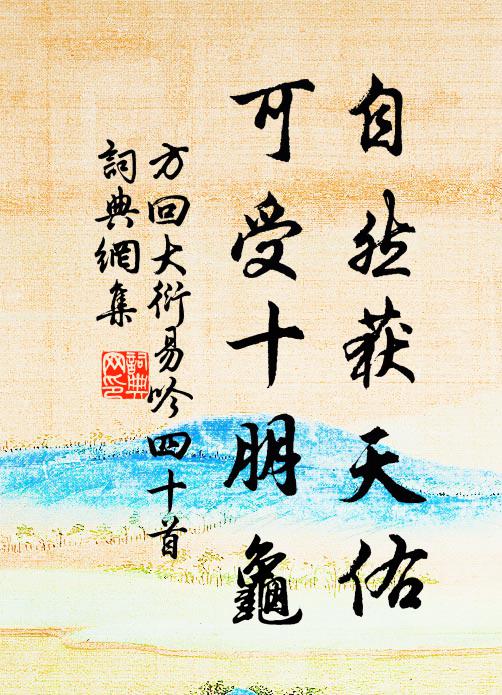 自然获天佑
可受十朋龜
方回大衍易吟四十首
詞典網集
詞典网印